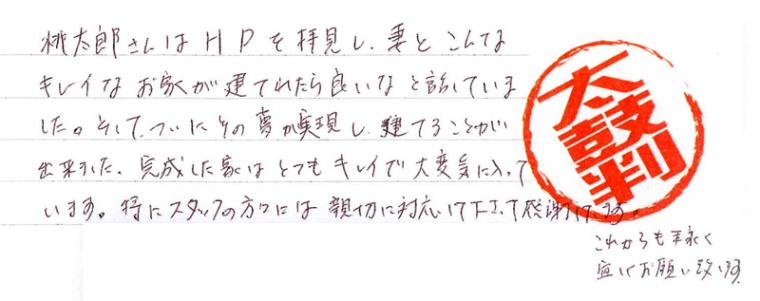 桃太郎さんはHPを拝見し、妻とこんな
キレイなお家が建てれたら良いなと話していま
した。そして、ついにその夢が実現し、建てることが
出来ました。完成した家はとてもキレイで大変気に入って
います。特にスタッフの方々には親切に対応して下さって感謝しています。
これからも末永く
宜しくお願い致します
太鼓判